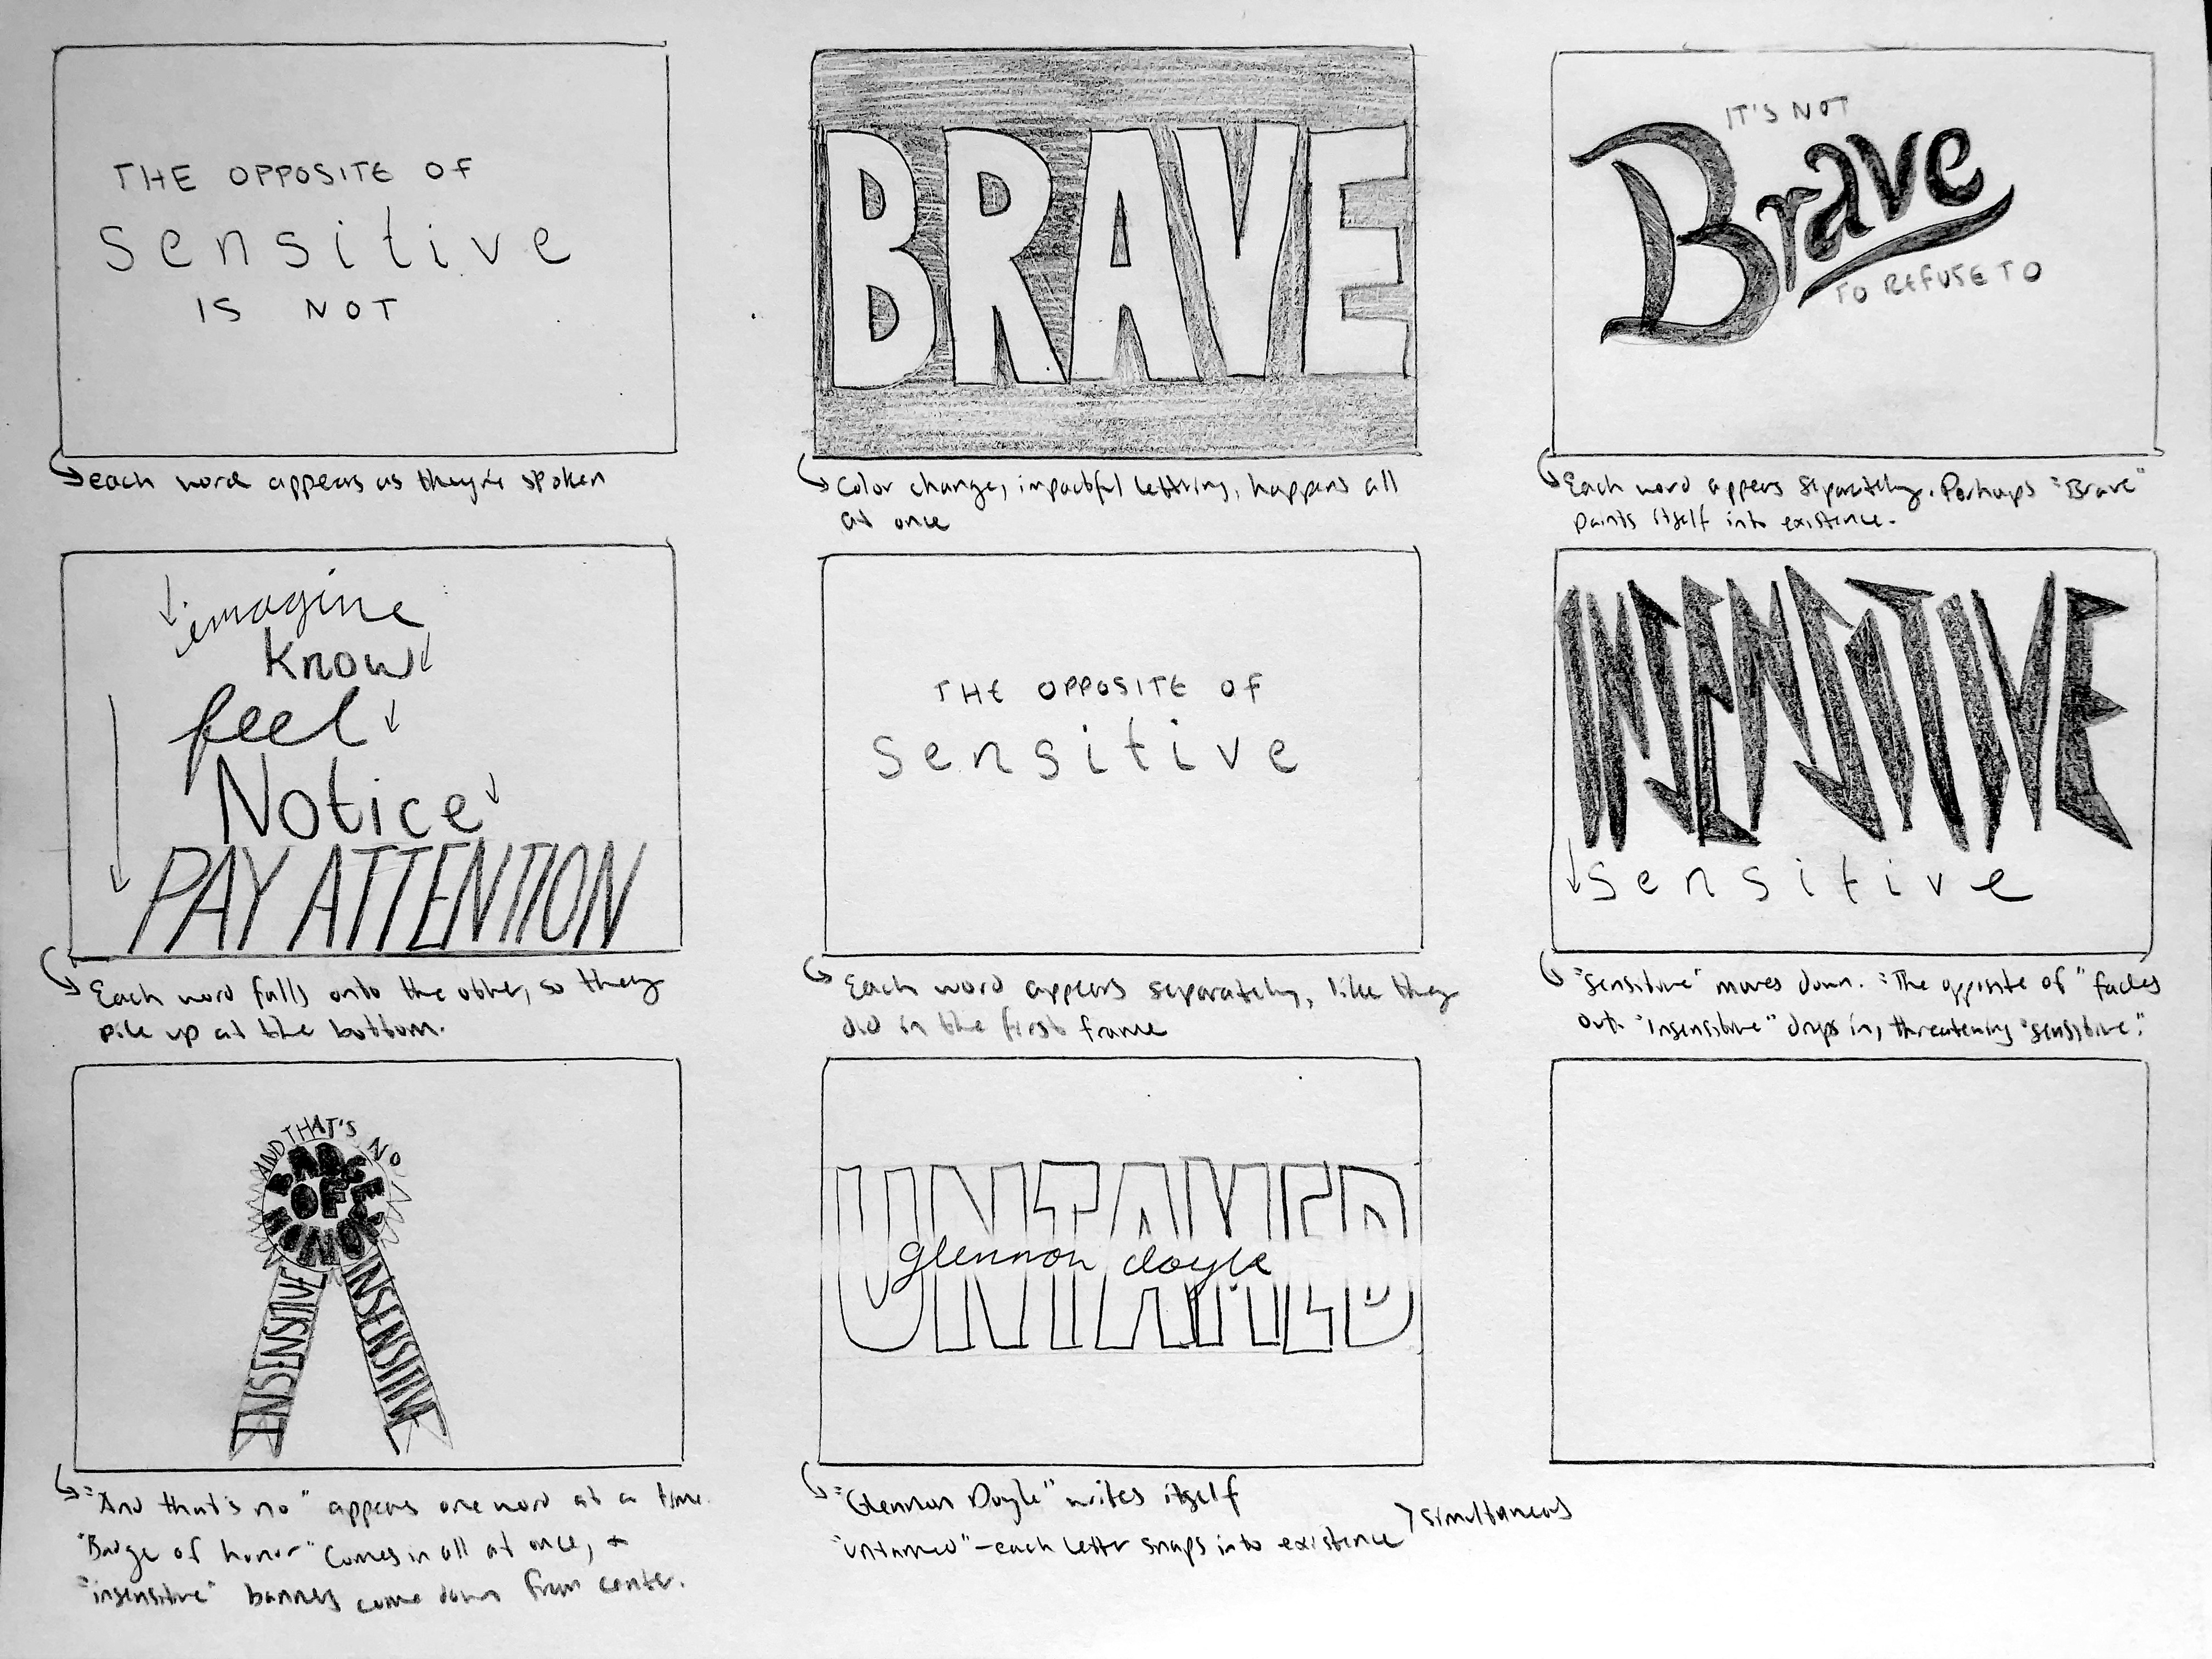 THE OPPOSITE OF
sensitive
IS NOT
each word appears as they're spoken
BRAVE
Color change, impactful lettring, happens all
at once
IT'S NOT
Brave
TO REFUSE TO
Each word appers separately. Perhaps "Brave"
paints itself into existence.
imagine
know
feel
Notice
PAY ATTENTION
Each word falls onto the other, so they
pile up at the bottom.
THE OPPOSITE OF
sensitive
Each word appears separately, like they
did in the first frame
INSENSITIVE
sensitive
"Sensitive" moves down. "The opposite of" fades
out. "Insensitive" drops in, threatening "sensitive."
AND THAT'S NO
BADGE
OF
HONOR
INSENSITIVE
INSENSITIVE
"And that's no" appears one word at a time.
"Badge of honor" comes in all at once, +
"insensitive" banners come down from center.
UNTAMED
glennon doyle
"Glennon Doyle" writes itself
"untamed" - each letter snaps into existence
> simultaneous